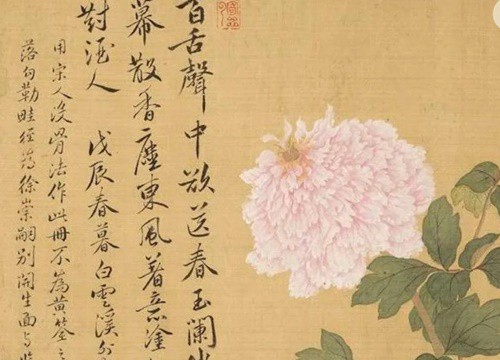 百舌聲中欲送春玉闌
幕散香塵東風著意塗
對酒人 戊辰春暮白雲溪外
用宋人没骨法作此冊不為黃筌
落勾勒畦徑為徐崇嗣別開生面与